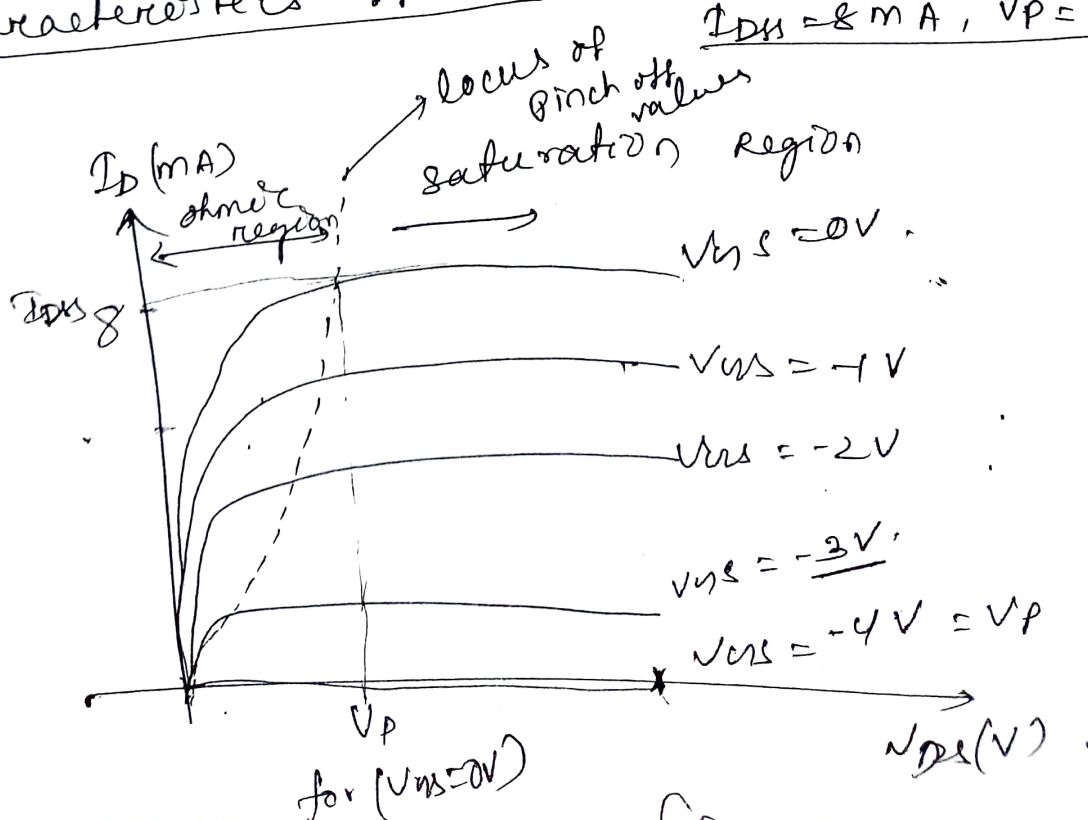 IDSS = 8 mA, VP =
locus of
pinch off
values
saturation Region
ID (mA)
ohmic
region
VGS = 0V.
IDSS 8
VGS = -1 V
VGS = -2 V
VGS = -3 V.
VGS = -4 V = VP
VP
for (VGS=0V)
VDS (V)